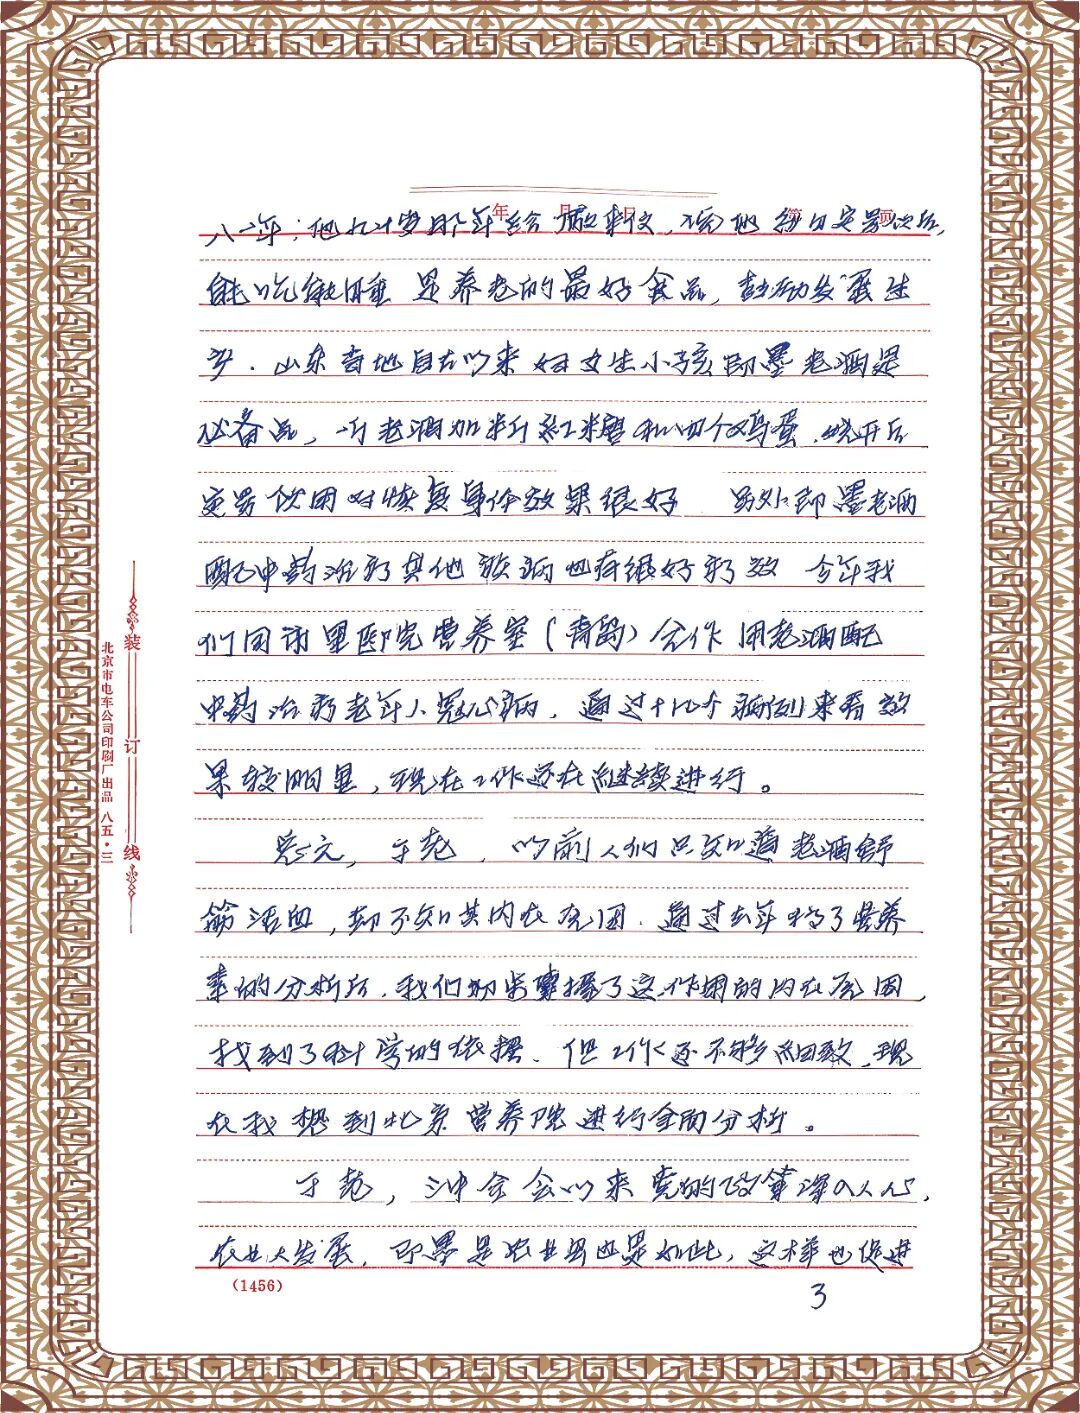 年 月 日 第 页
八一年：他九十岁那年给厂致来仪，说他每日定量饮后，
能吃能睡 是养老的最好食品，鼓励发展生
产．山东当地自古以来妇女生小孩即墨老酒是
必备品，一斤老酒加半斤红糖和四个鸡蛋．烧开后
定量饮用对恢复身体效果很好 另外即墨老酒
配中药治疗其他疾病也有很好疗效 今年我
们同 医院营养室（青岛）合作用老酒配
中药治疗老年人冠心病，通过十几个病例来看效
果较明显，现在工作还在继续进行。
，于老，以前人们只知道老酒舒
筋活血，却不知其内在原因．通过去年搞了营养
素的分析后．我们初步掌握了这作用的内在原因，
找到了科学的依据．但工作还不够细致，现
在我想到北京营养院进行全面分析。
于老，三中全会以来党的政策深入人心，
农业大发展．即墨是农业县也是如此，这样也促进
3
(1456)
装订线
北京市电车公司印刷厂出品 八五·三